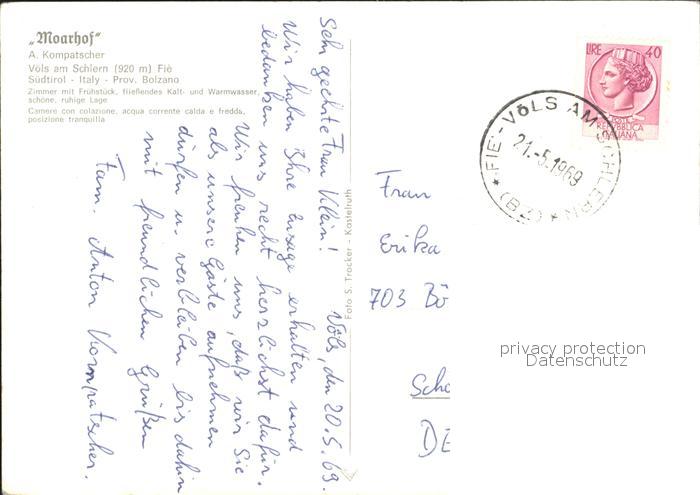 „Moarhof“
A. Kompatscher
Völs am Schlern (920 m) Fiè
Südtirol - Italy - Prov. Bolzano
Zimmer mit Frühstück, fließendes Kalt- und Warmwasser,
schöne, ruhige Lage
Camere con colazione, acqua corrente calda e fredda,
posizione tranquilla
Völs, den 20.5.69.
Sehr geehrte Frau Klein!
Wir haben Ihre Zusage erhalten und
bedanken uns recht herzlichst dafür.
Wir freuhen uns, daß wir Sie
als unsere Gäste aufnehmen
dürfen u. verbleiben bis dahin
mit freundlichen Grüßen
Fam. Anton Kompatscher.
Foto S. Trocker - Kastelruth
LIRE 40
POSTE
REPUBBLICA
ITALIANA
* FIE - VÖLS AM SCHLERN * (BZ)
21.-5.1969
Frau
Erika
703 Bö
Scho
DE
privacy protection
Datenschutz